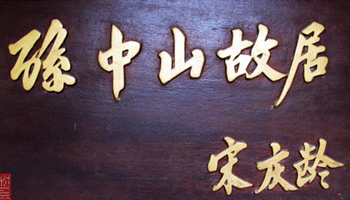 孫中山故居
宋庆龄